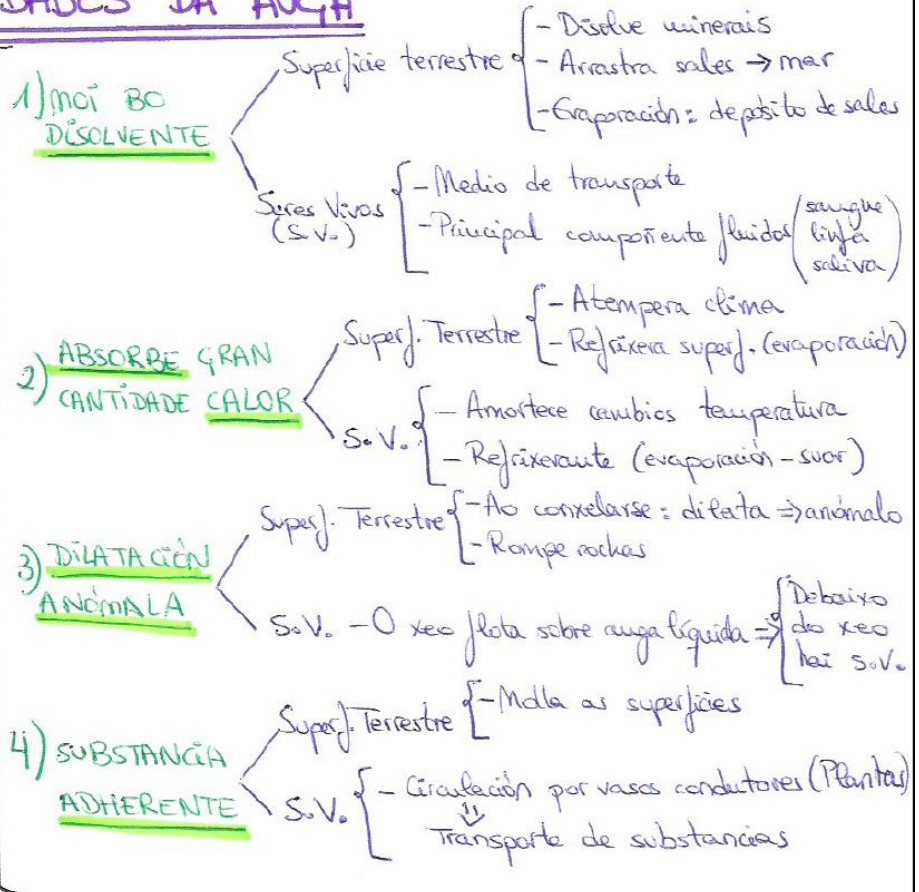 DADES DA AUGA
1) MOI BO
DISOLVENTE
Superficie terrestre
- Disolve minerais
- Arrastra sales → mar
- Evaporación: depósito de sales
Seres Vivos
(S.V.)
- Medio de transporte
- Principal compoñente fluidos (sangue
linfa
saliva)
2) ABSORBE GRAN
CANTIDADE CALOR
Superf. Terrestre
- Atempera clima
- Refrixera superf. (evaporación)
S.V.
- Amortece cambios temperatura
- Refrixerante (evaporación - suor)
3) DILATACIÓN
ANÓMALA
Superf. Terrestre
- Ao conxelarse: dilata => anómalo
- Rompe rochas
S.V. - O xeo flota sobre auga líquida =>
Debaixo
do xeo
hai S.V.
4) SUBSTANCIA
ADHERENTE
Superf. Terrestre
- Molla as superficies
S.V.
- Circulación por vasos condutores (Plantas)
⇓
Transporte de substancias